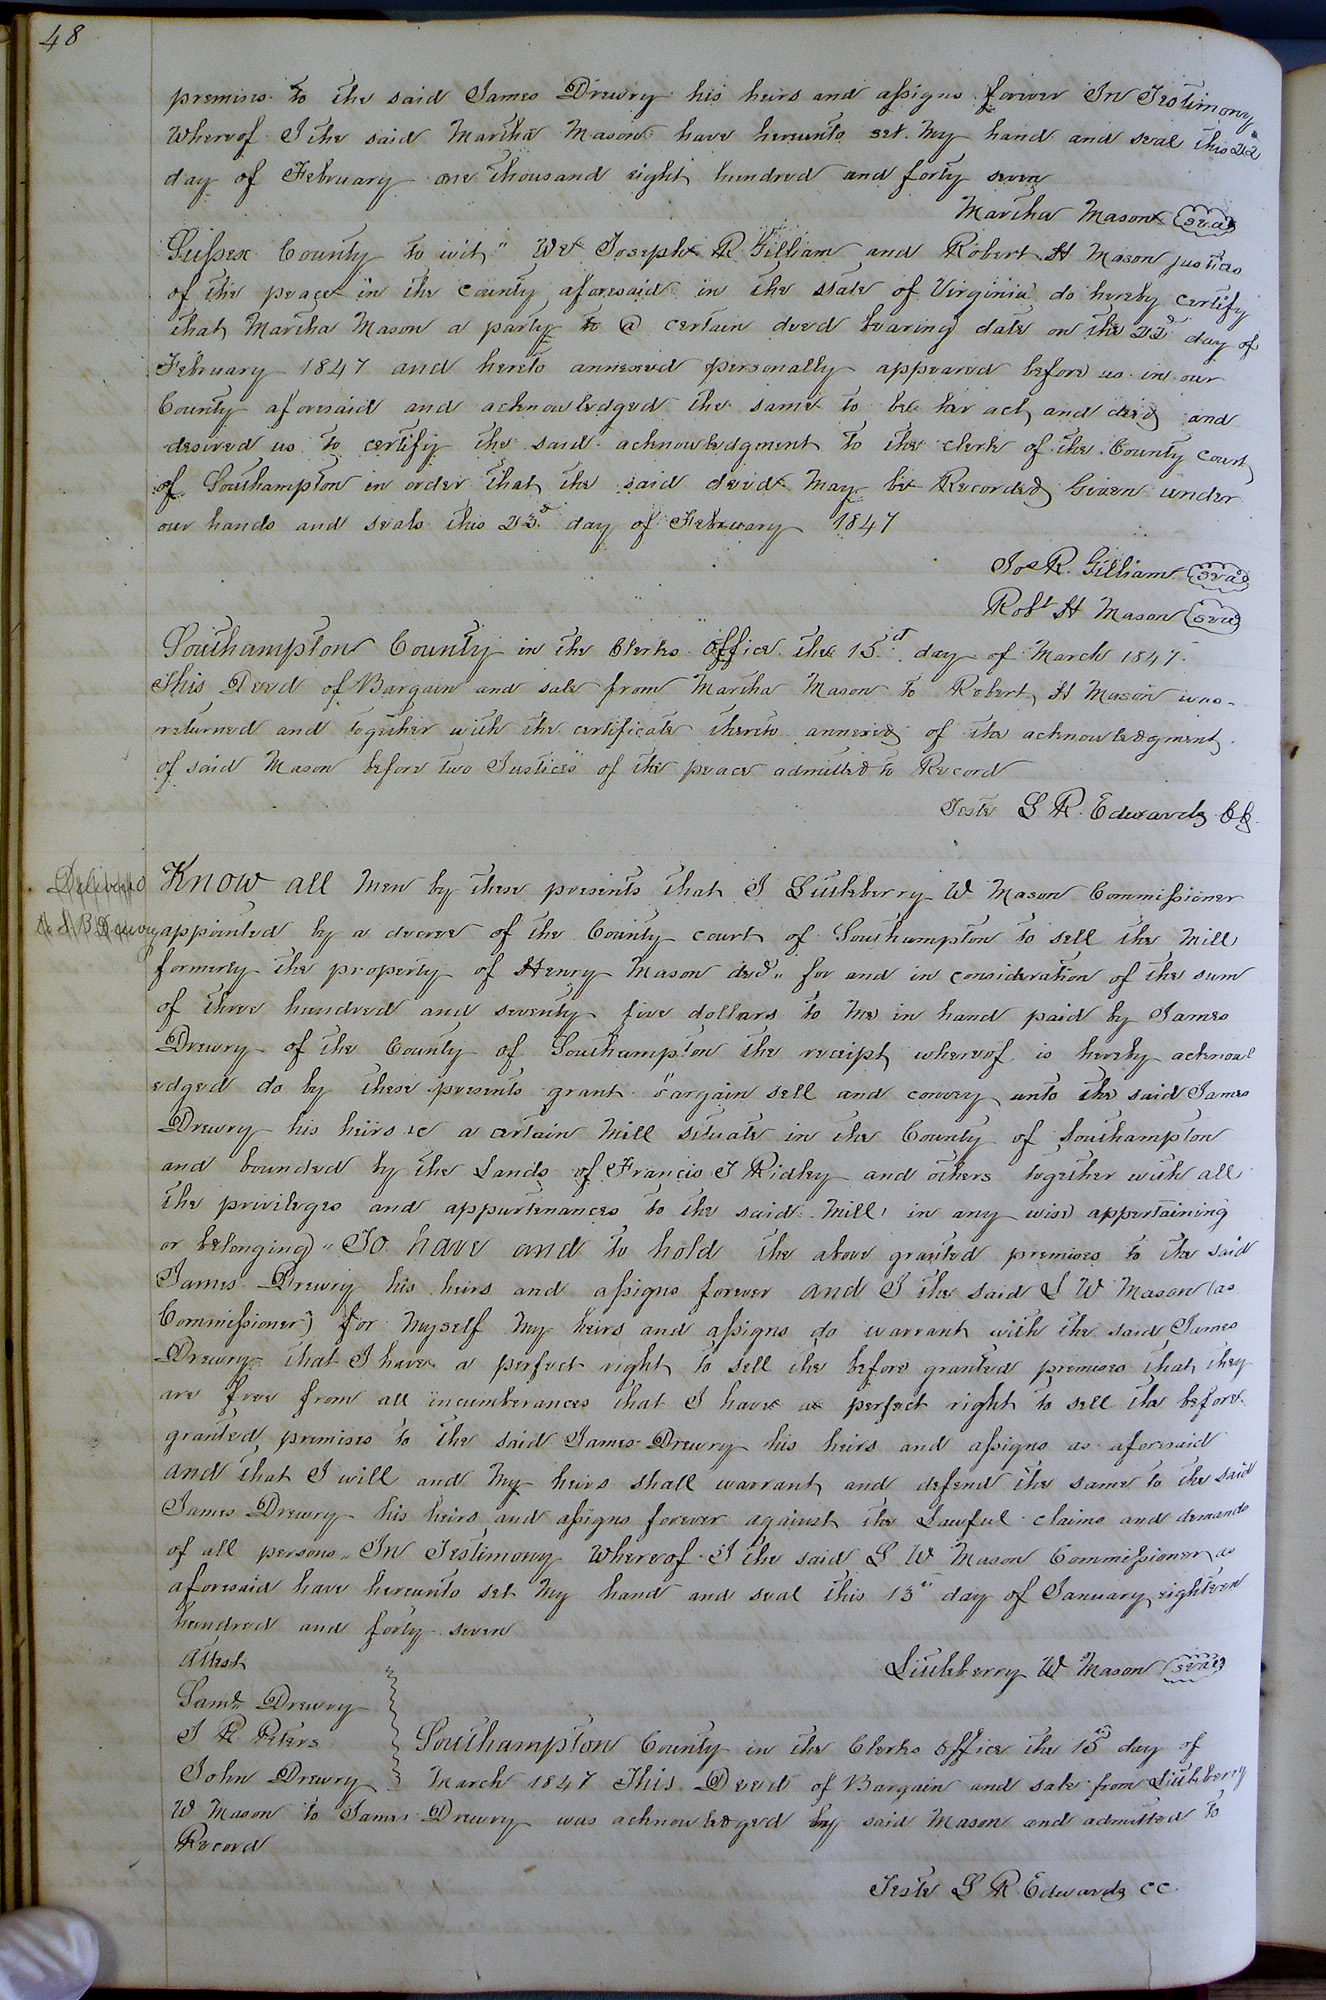 48
premises to the said James Drewry his heirs and assigns forever In Testimony
Whereof I the said Martha Mason have hereunto set my hand and seal this 22d
day of February one thousand eight hundred and forty seven
Martha Mason (seal)
Sussex County to wit" We Joseph R Gilliam and Robert H Mason justices
of the peace in the County aforesaid in the state of Virginia do hereby certify
that Martha Mason a party to @ certain deed bearing date on the 22d day of
February 1847 and hereto annexed personally appeared before us in our
County aforesaid and acknowledged the same to be her act and deed and
desired us to certify the said acknowledgment to the clerk of the County court
of Southampton in order that the said deed may be Recorded Given under
our hands and seals this 23d day of February 1847
Jos R. Gilliam (seal)
Robt H Mason (seal)
Southampton County in the Clerks office the 15th day of March 1847.
This Deed of Bargain and sale from Martha Mason to Robert H Mason was
returned and together with the certificate thereto annexed of the acknowledgment
of said Mason before two Justices of the peace admitted to Record
Teste L R. Edwards Ck.
Delivered
to S B Drewry
Know all men by these presents that I Littleberry W Mason Commissioner
appointed by a decree of the County court of Southampton to sell the Mill
formerly the property of Henry Mason decd" for and in consideration of the sum
of three hundred and seventy five dollars to me in hand paid by James
Drewry of the County of Southampton the receipt whereof is hereby acknowl
edged do by these presents grant bargain sell and convey unto the said James
Drewry his heirs &c a certain Mill situate in the County of Southampton
and bounded by the Lands of Francis T Ridley and others together with all
the privileges and appurtenances to the said Mill in any wise appertaining
or belonging" To have and to hold the above granted premises to the said
James Drewry his heirs and assigns forever and I the said L W Mason (as
Commissioner) for myself my heirs and assigns do warrant with the said James
Drewry that I have a perfect right to sell the before granted premises that they
are free from all incumberances that I have a perfect right to sell the before
granted premises to the said James Drewry his heirs and assigns as aforesaid
and that I will and my heirs shall warrant and defend the same to the said
James Drewry his heirs and assigns forever against the Lawful claims and demands
of all persons" In Testimony Whereof I the said L W Mason Commissioner as
aforesaid have hereunto set my hand and seal this 13th day of January eighteen
hundred and forty seven
Attest
Littleberry W Mason (seal)
Saml Drewry
J R Peters
John Drewry
Southampton County in the Clerks office the 15th day of
March 1847 This Deed of Bargain and sale from Littleberry
W Mason to James Drewry was acknowledged by said Mason and admitted to
Record
Teste L R Edwards CC